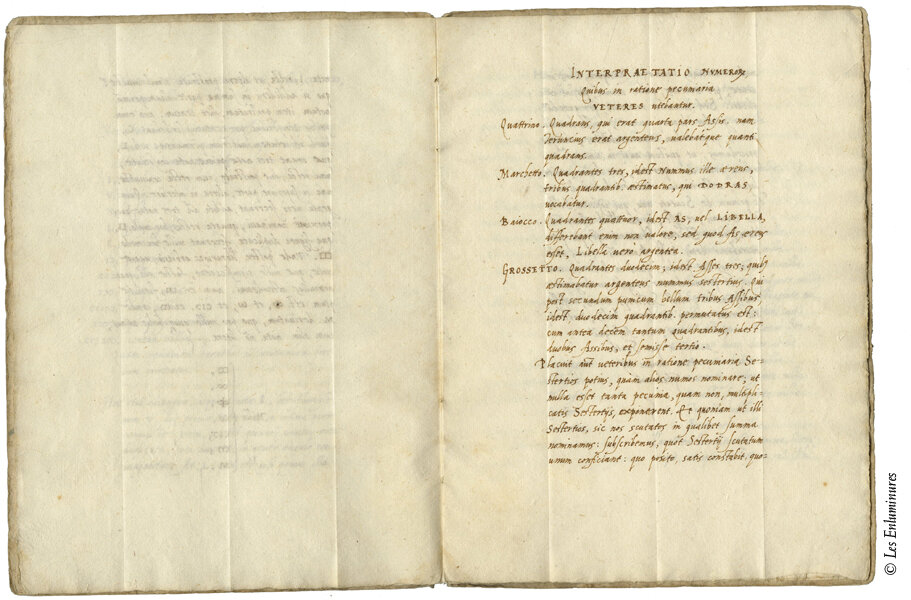 INTERPRAETATIO NUMEROR
Quibus in ratione pecuniaria
VETERES utebantur.
Quattrino. Quadrans, qui erat quarta pars Assis. nam
Teruncius erat argenteus, valebatque quant
quadrans.
Marchetto. Quadrantes tres, idest Nummus ille aereus,
tribus quadrantib. aestimatus, qui DODRAS
vocabatur.
Baiocco. Quadrantes quattuor, idest AS, vel LIBELLA,
differebant enim non valore, sed quod As aereus
esset, Libella vero argentea.
GROSSETTO. Quadrantes duodecim, idest Asses tres, quibus
aestimabatur argenteus nummus sestertius. Qui
post secundum punicum bellum tribus Assibus,
idest duodecim quadrantib. permutatus est:
cum antea decem tantum quadrantibus, idest
duobus Assibus, et semisse tertio.
Placuit aut veteribus in ratione pecuniaria Se-
stertios potius, quam alios numos nominare; ut
nulla esset tanta pecunia, quam non, multipli-
catis Sestertijs, exponerent. Et quoniam ut illi
Sestertios, sic nos scutatos in qualibet summa
nominamus: subscribemus, quot Sestertij scutatum
unum conficiant: quo posito, satis constabit, quo-
© Les Enluminures